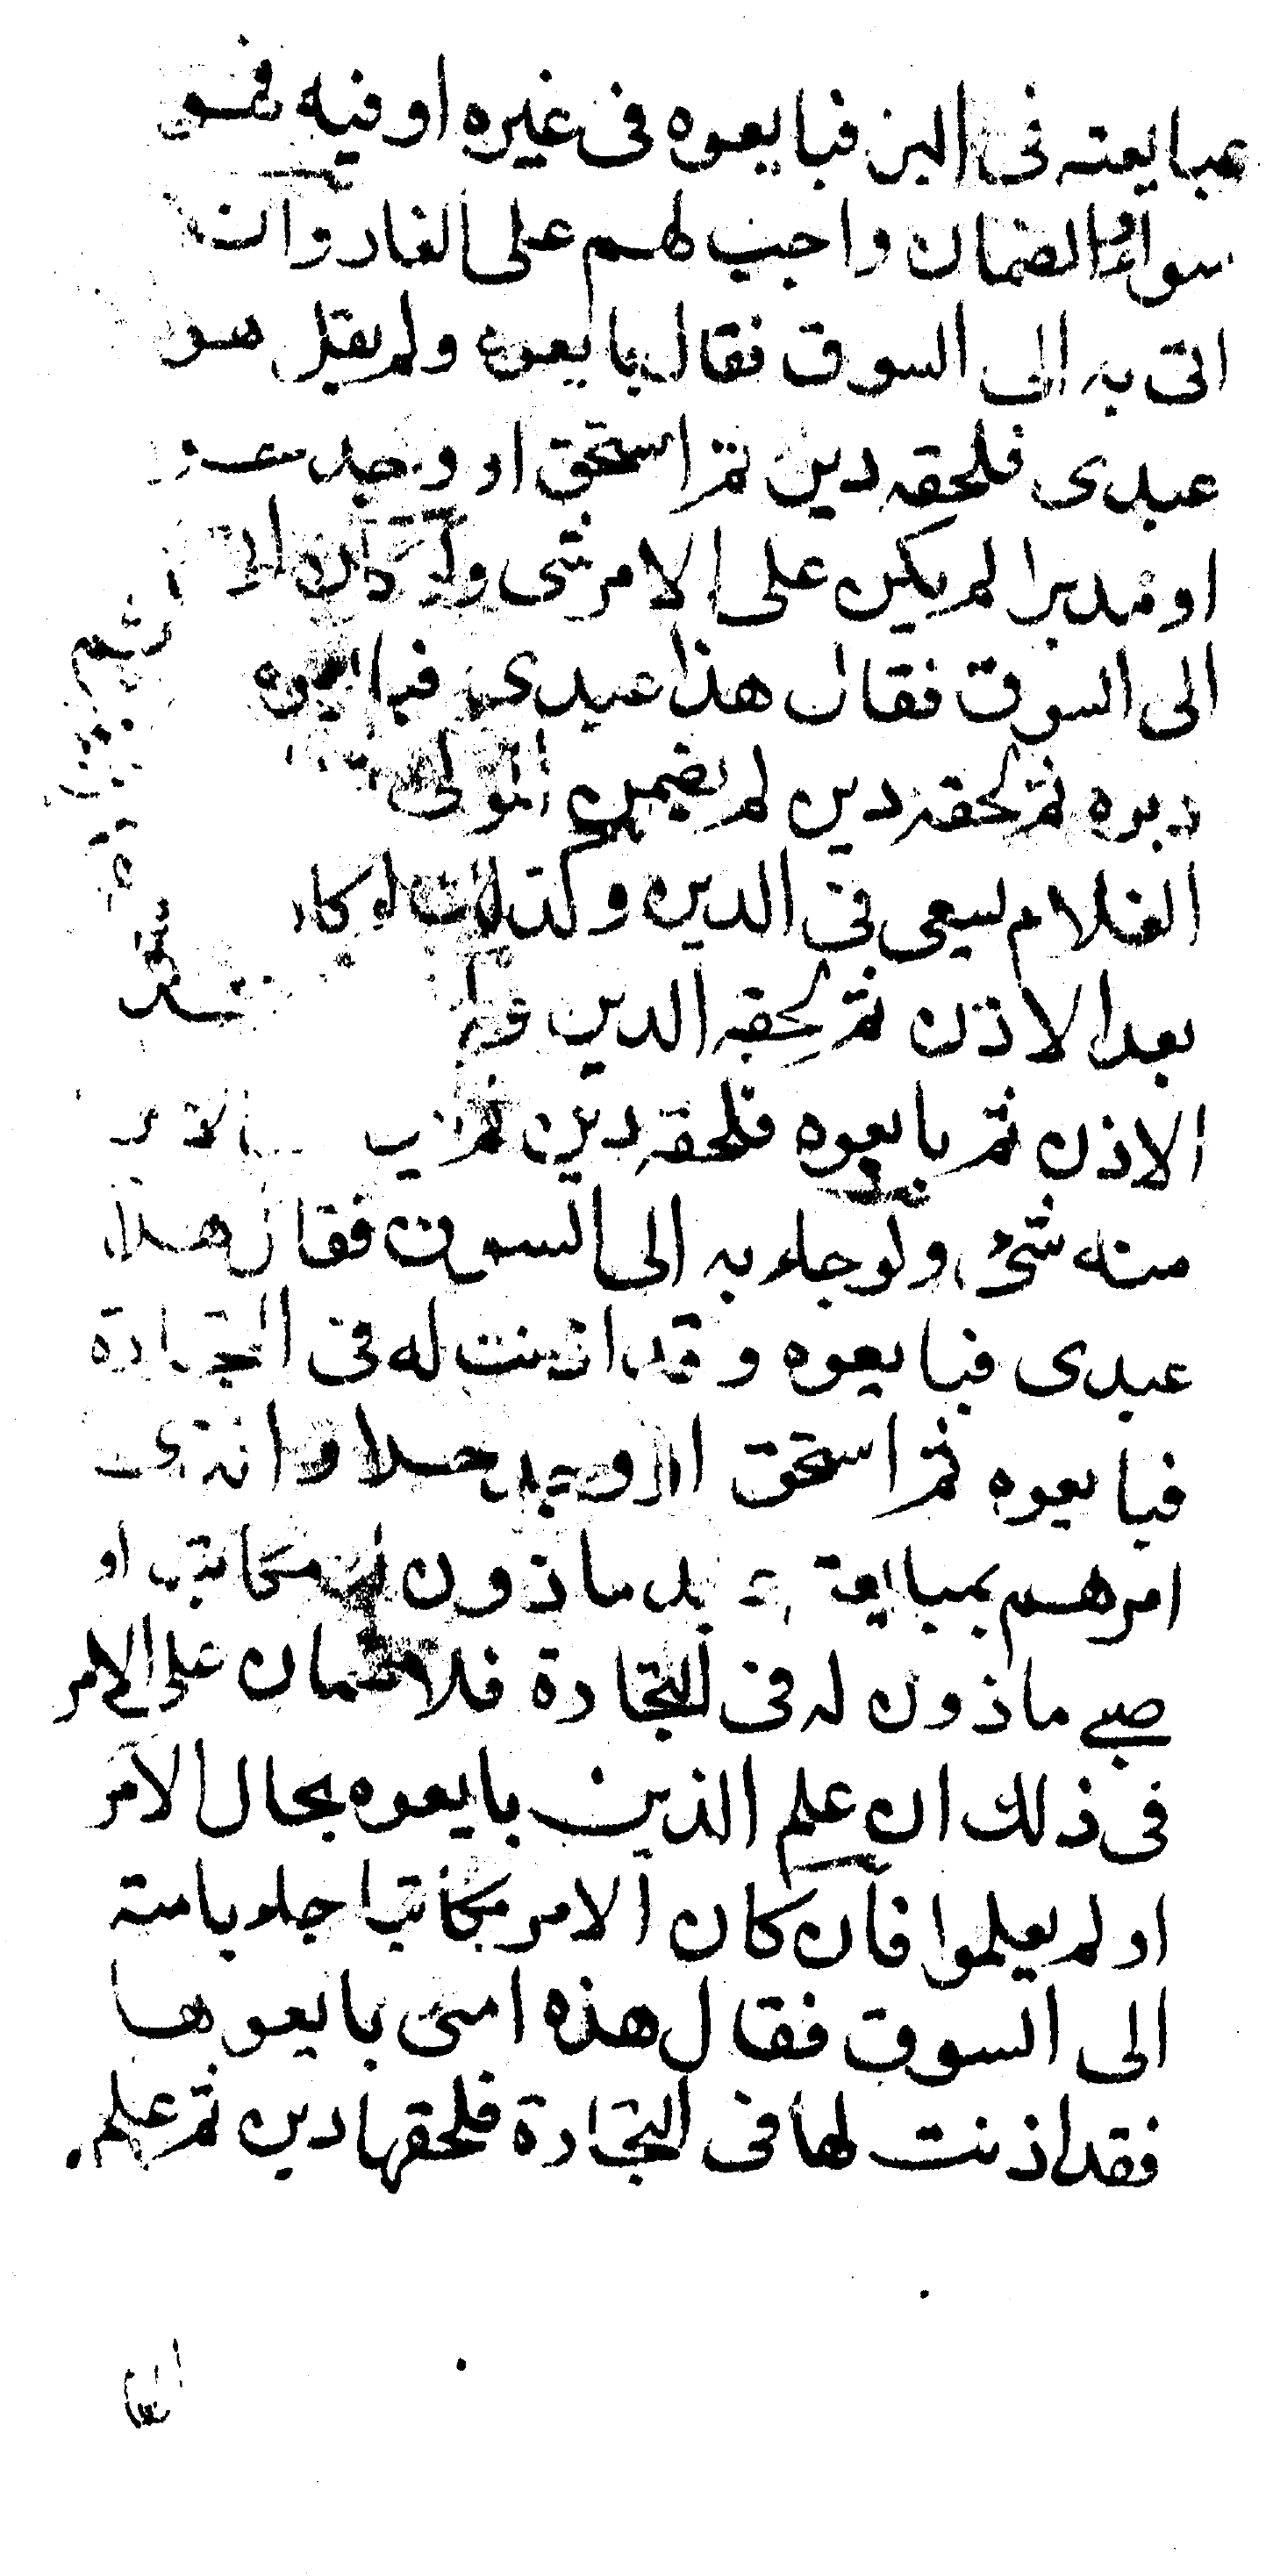 عبايعته فى البز فبايعوه فى غيره او فيه فهو
سواء والضمان واجب لهم على الغار وان
اتى به الى السوق فقال بايعوه ولم يقل هو
عبدى فلحقه دين ثم استحق او وجد
او مدبرا لم يكن على الامر شى ولو كان
الى السوق فقال هذا عبدى فبايعوه
دبره ثم لحقه دين لم يضمن المولى
الغلام يسعى فى الدين وكذلك لو كان
بعد الاذن ثم لحقه الدين
الاذن ثم بايعوه فلحقه دين لم الامر
منه شئ ولو جاء به الى السوق فقال هذا
عبدى فبايعوه وقد اذنت له فى التجارة
فبايعوه ثم استحق او وجد حرا والذى
امرهم بمبايعته عبد ماذون او مكاتب او
صبى ماذون له فى التجارة فلا ضمان على الامر
فى ذلك ان علم الذين بايعوه بحال الامر
او لم يعلموا فان كان الامر مكاتبا جاء بامته
الى السوق فقال هذه امتى بايعوها
فقد اذنت لها فى التجارة فلحقها دين ثم علم